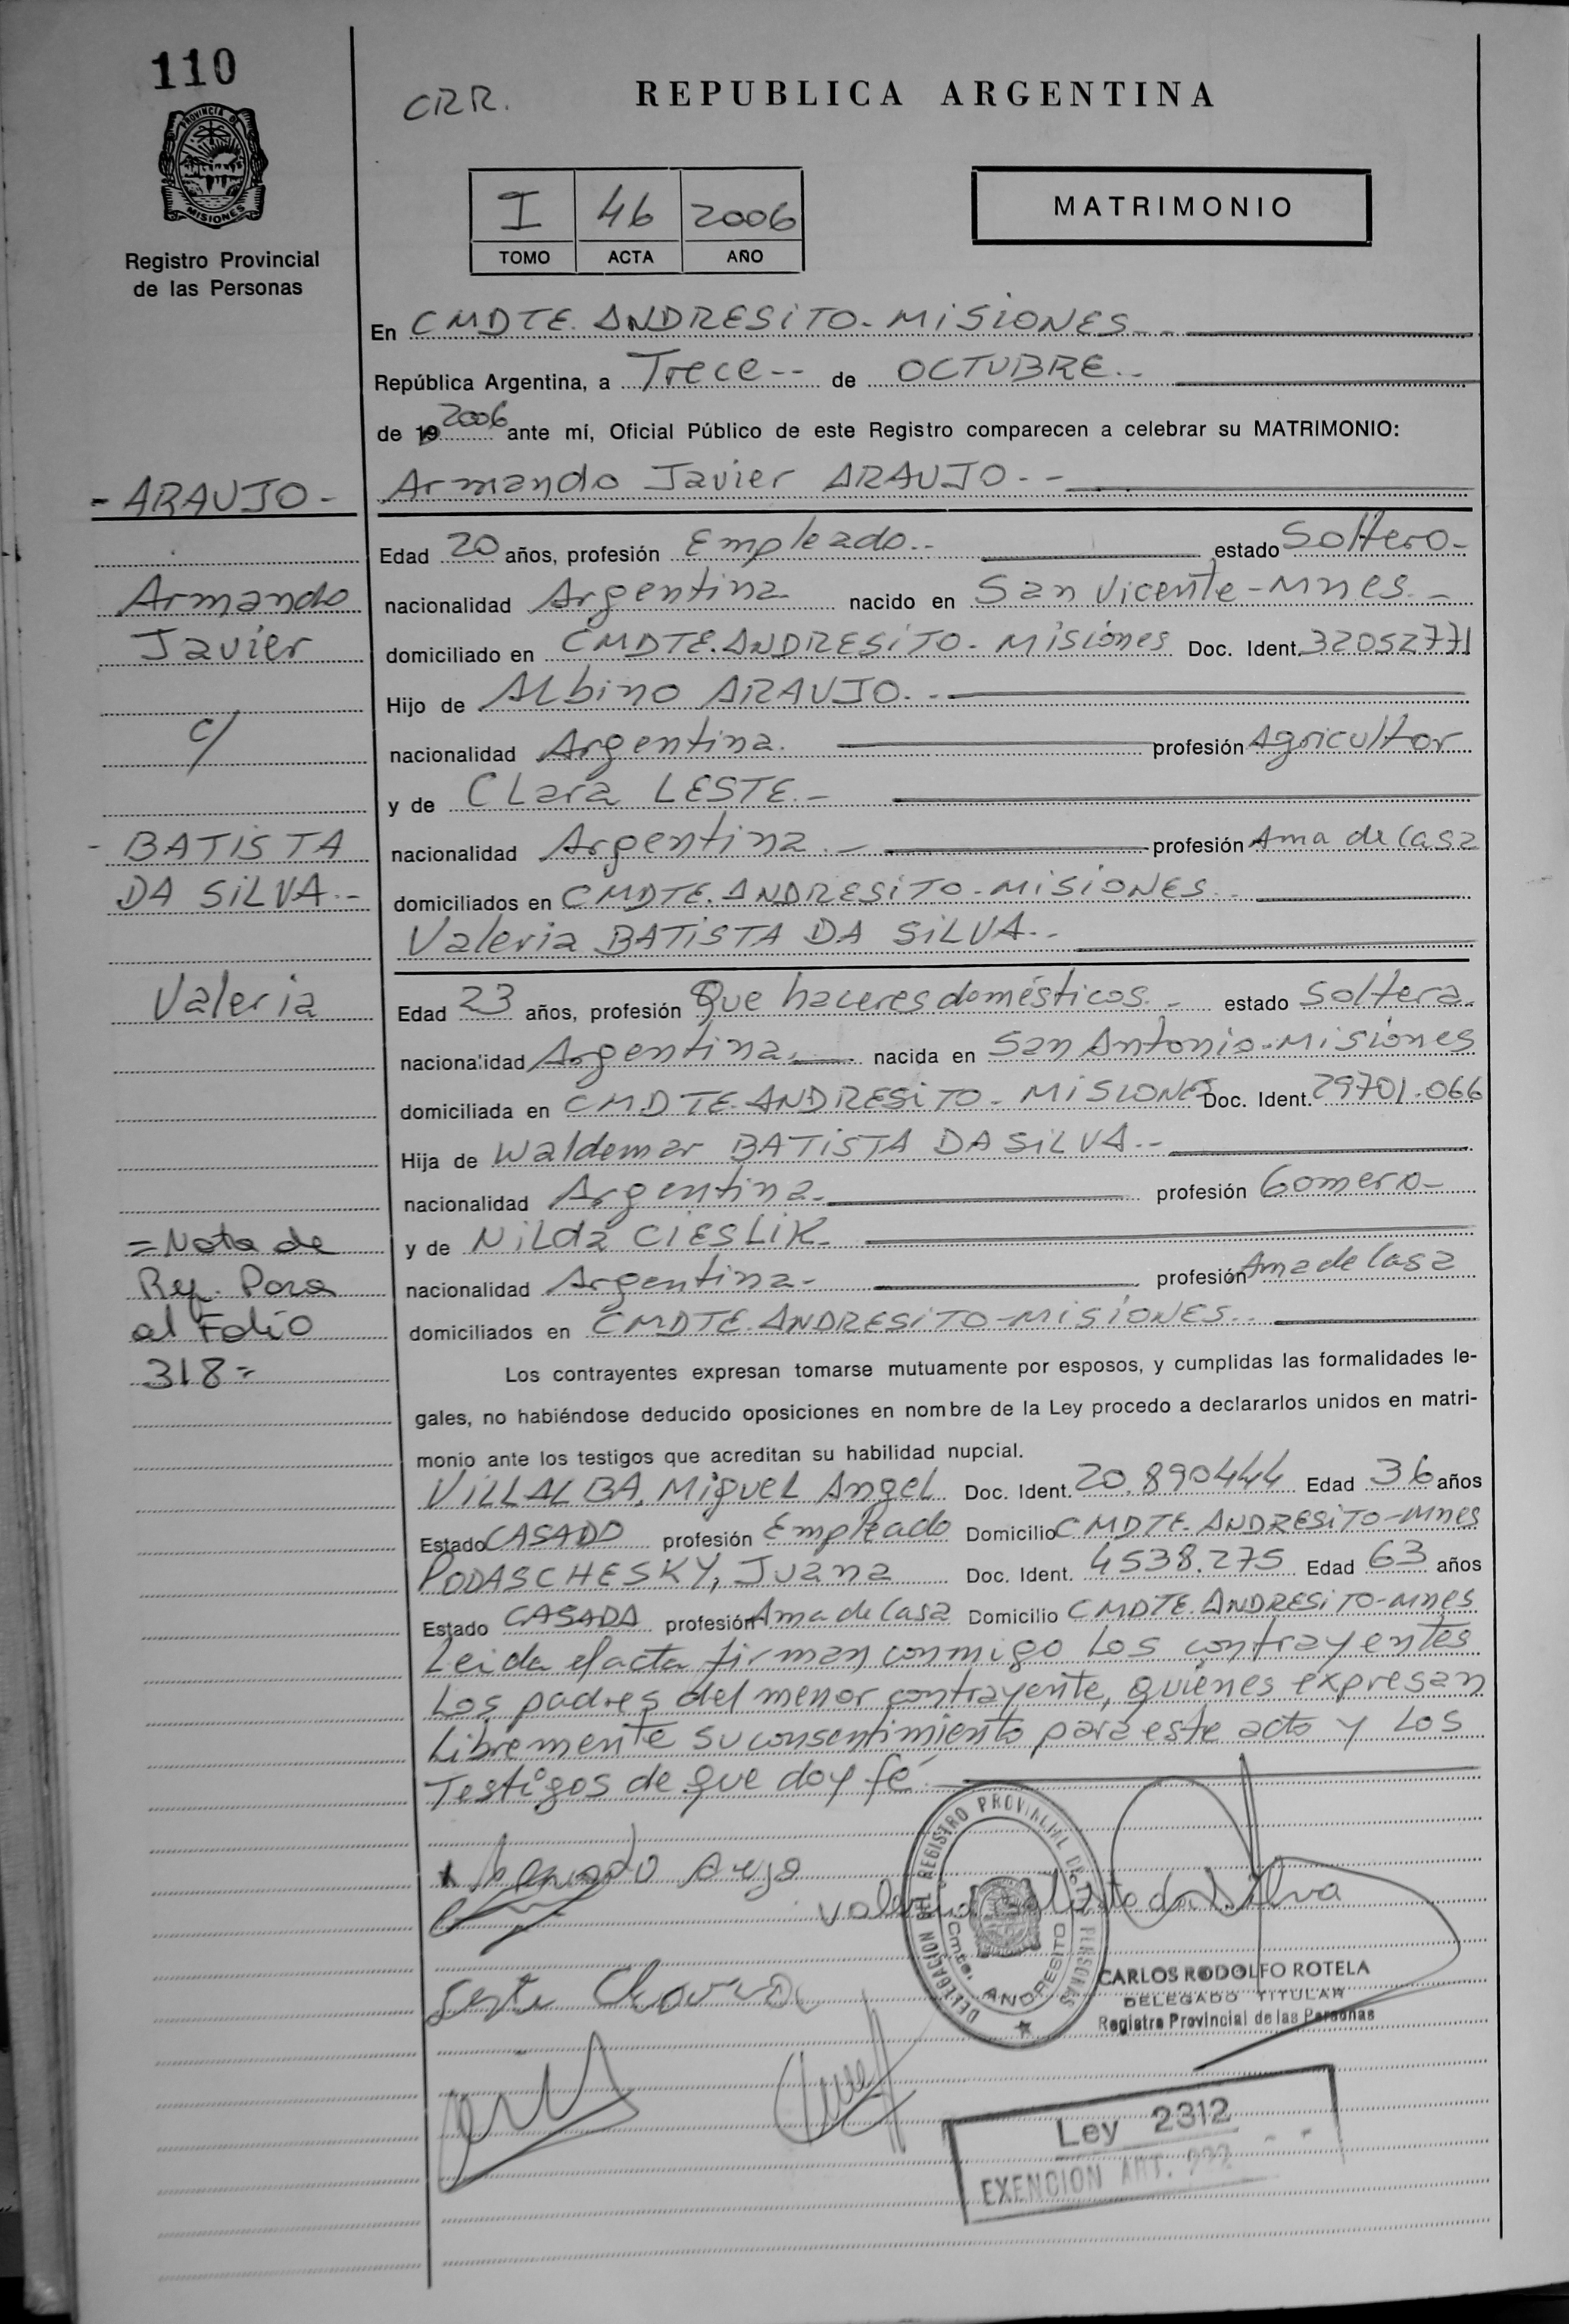 110
CRR.
REPUBLICA ARGENTINA
PROVINCIA DE
MISIONES
Registro Provincial
de las Personas
I 46 2006
TOMO ACTA AÑO
MATRIMONIO
En CMDTE. ANDRESITO - MISIONES
República Argentina, a Trece -- de OCTUBRE
de 19 2006 ante mí, Oficial Público de este Registro comparecen a celebrar su MATRIMONIO:
- ARAUJO -
Armando Javier ARAUJO. -
Edad 20 años, profesión Empleado.. estado Soltero-
Armando
nacionalidad Argentina nacido en San Vicente - Mnes. -
Javier
domiciliado en CMDTE. ANDRESITO - Misiones Doc. Ident. 32052771
Hijo de Albino ARAUJO. -
c/
nacionalidad Argentina. profesión Agricultor
y de Clara LESTE. -
- BATISTA
nacionalidad Argentina. - profesión Ama de Casa
DA SILVA. -
domiciliados en CMDTE. ANDRESITO - MISIONES.
Valeria BATISTA DA SILVA. -
Valeria
Edad 23 años, profesión Que haceres domésticos. - estado Soltera.
nacionalidad Argentina. nacida en San Antonio - Misiones
domiciliada en CMDTE. ANDRESITO - MISIONES Doc. Ident. 29701.066
Hija de Waldemar BATISTA DA SILVA. -
nacionalidad Argentina. profesión Gomero -
= Nota de
y de Nilda CIESLIK.
Ref. Pasa
nacionalidad Argentina - profesión Ama de Casa
al Folio
domiciliados en CMDTE. ANDRESITO - MISIONES. .
318 =
Los contrayentes expresan tomarse mutuamente por esposos, y cumplidas las formalidades le-
gales, no habiéndose deducido oposiciones en nombre de la Ley procedo a declararlos unidos en matri-
monio ante los testigos que acreditan su habilidad nupcial.
VILLALBA, Miguel Angel Doc. Ident. 20.890444 Edad 36 años
Estado CASADO profesión Empleado Domicilio CMDTE. ANDRESITO - Mnes
PODASCHESKY, Juana Doc. Ident. 4538.275 Edad 63 años
Estado CASADA profesión Ama de Casa Domicilio CMDTE. ANDRESITO - Mnes
Leida el acta firman conmigo Los contrayentes
Los padres del menor contrayente, quienes expresan
Libremente su consentimiento para este acto y Los
Testigos de que doy fé.
DELEGACION DEL REGISTRO PROVINCIAL DE LAS PERSONAS
Cmte. ANDRESITO
Valeria Batista da Silva
CARLOS RODOLFO ROTELA
DELEGADO TITULAR
Registro Provincial de las Personas
Ley 2312
EXENCION ART.